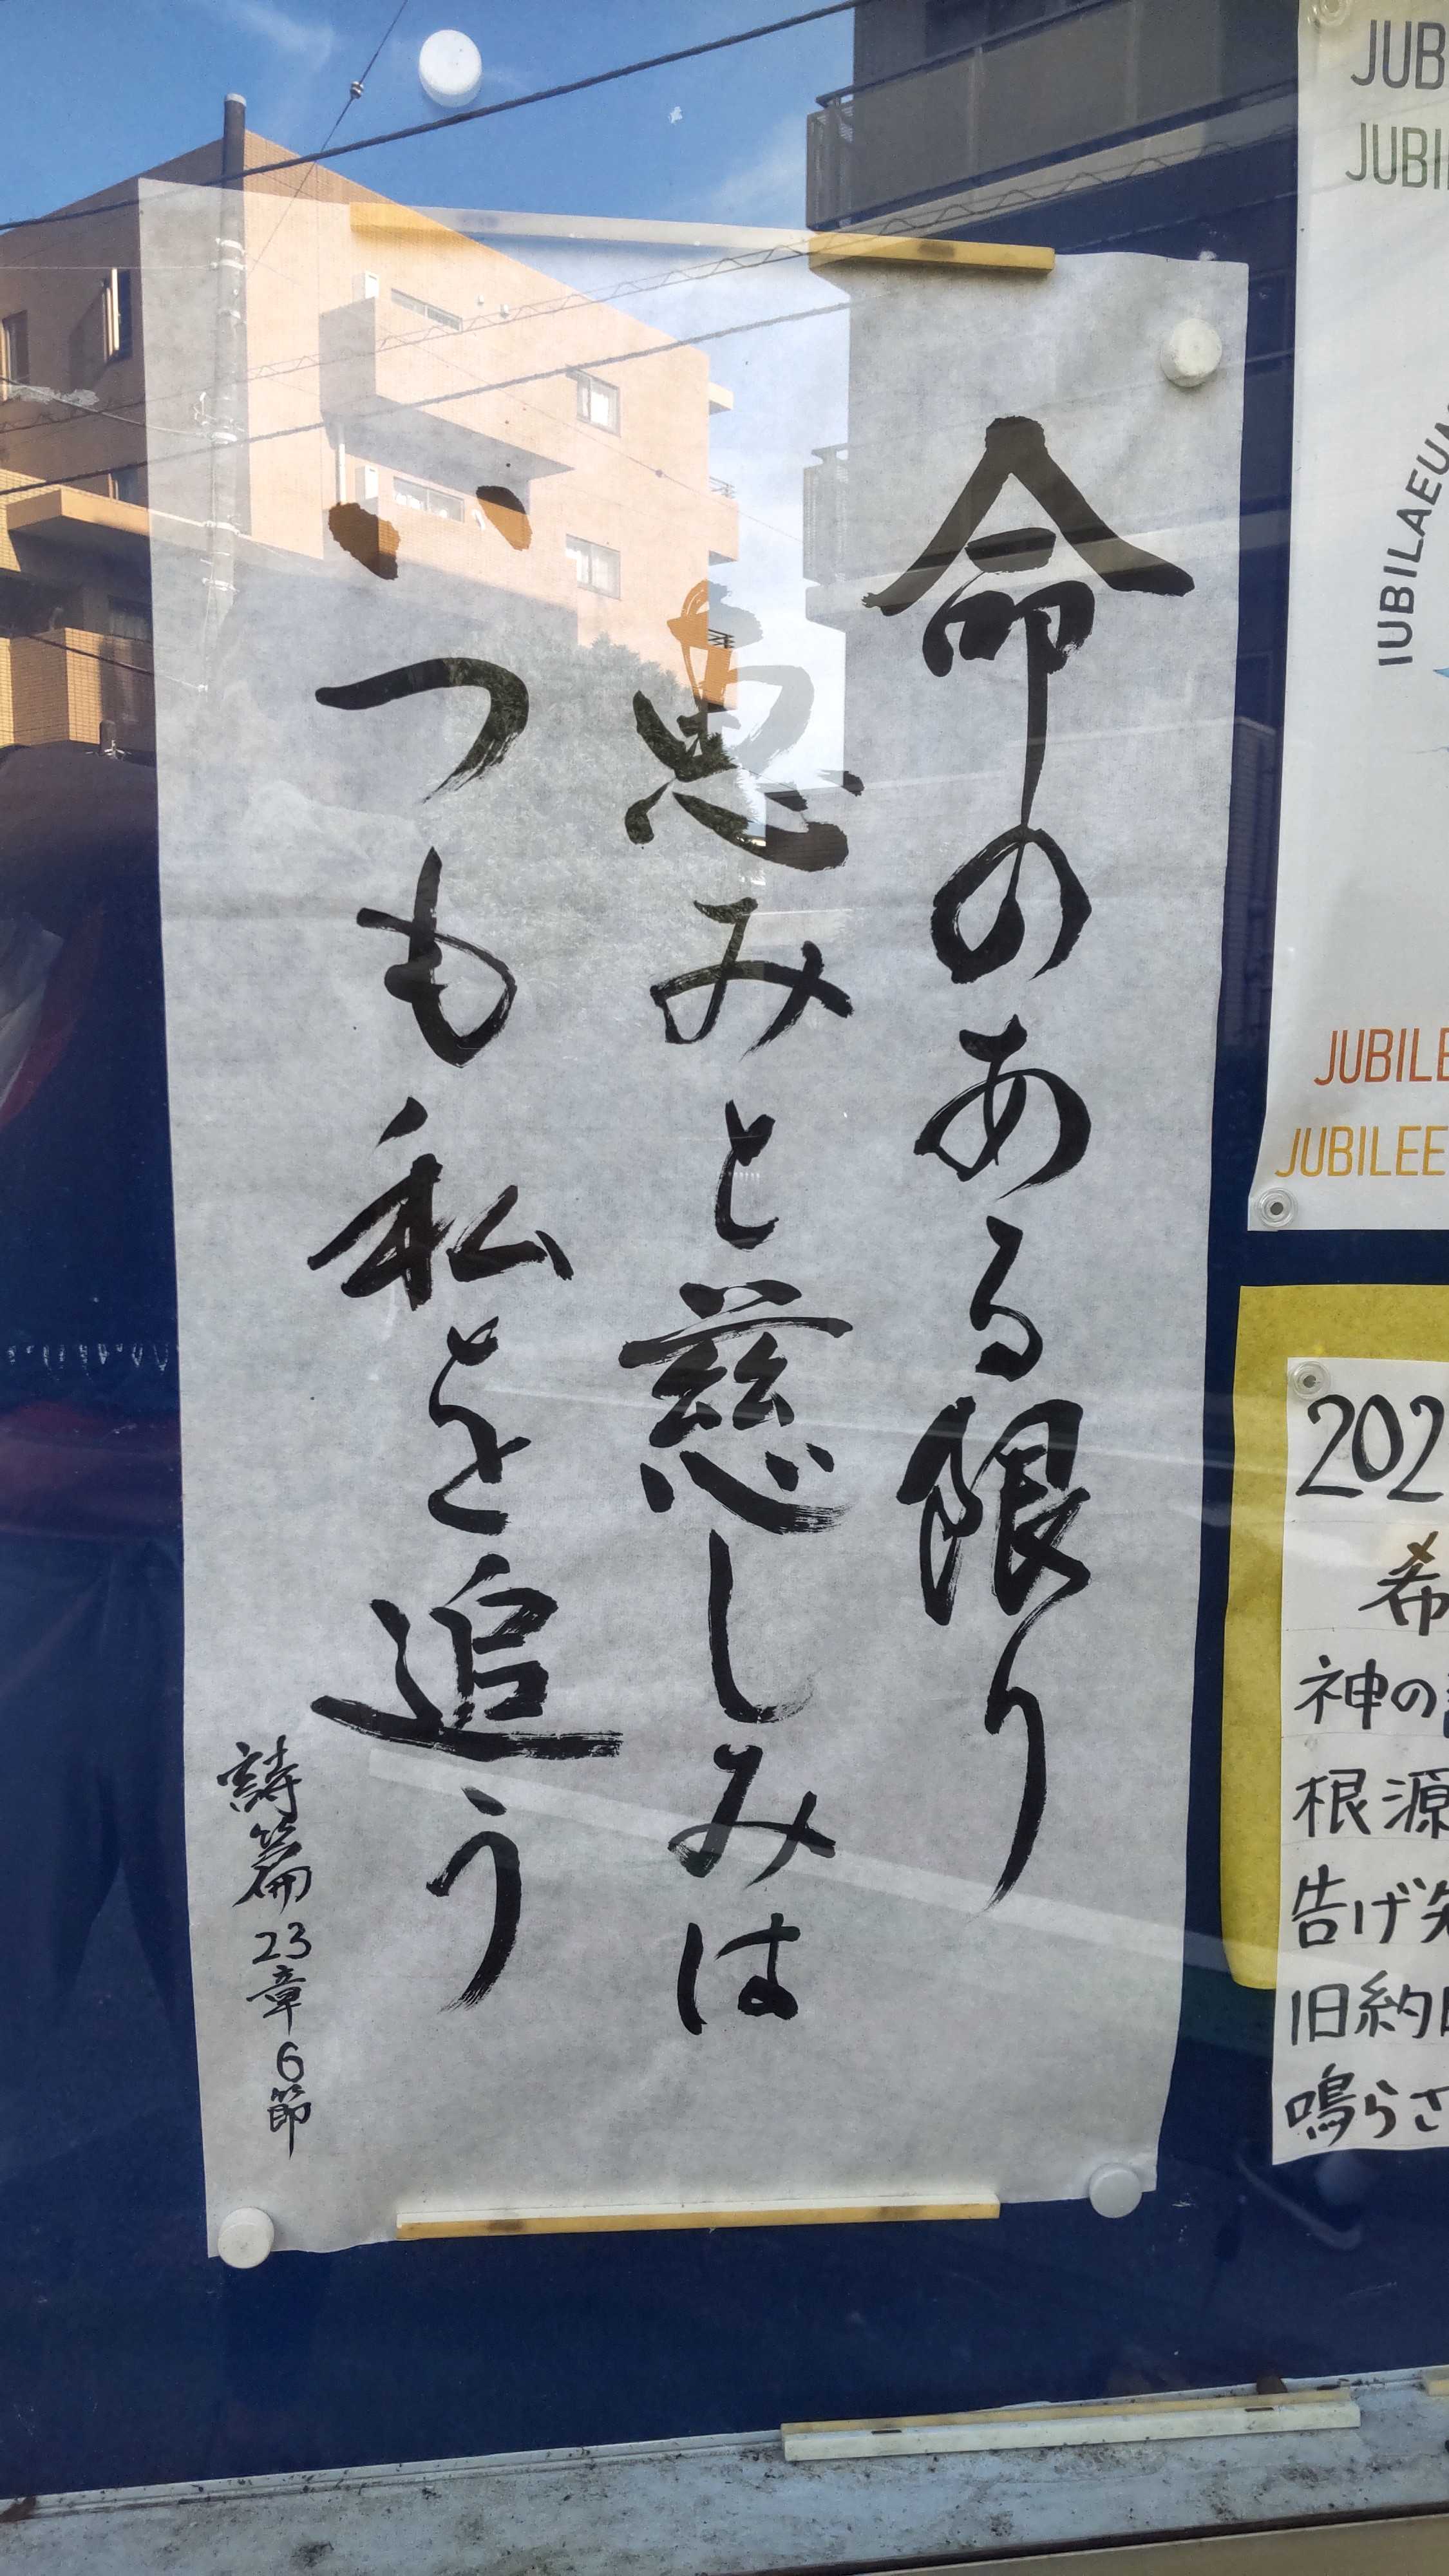 命のある限り
恵みと慈しみは
いつも私を追う
詩篇23章6節
JUB
JUBI
IUBILAEU
JUBILE
JUBILEE
202
希
神の
根源
告げ
旧約
鳴らさ